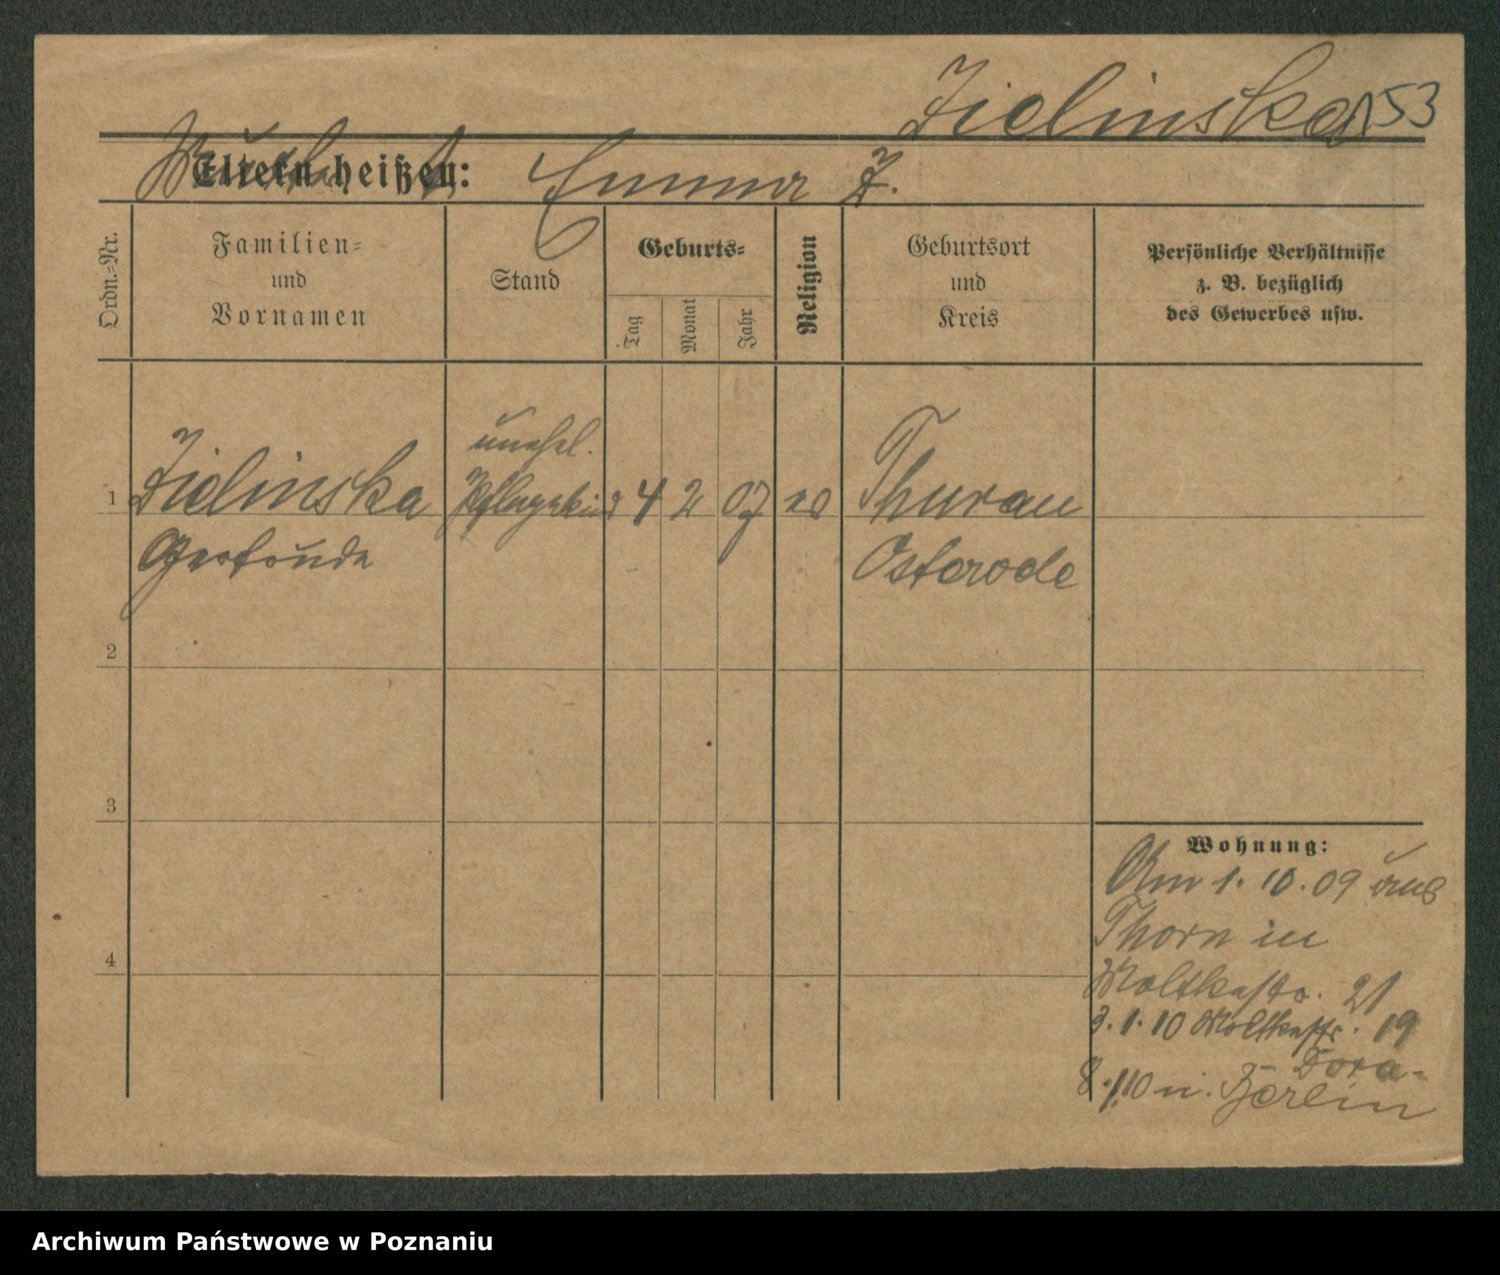 Zielinska 153
Eltern heißen: Emma Z.
Ordn.-Nr.
Familien-
und
Vornamen
Stand
Geburts-
Tag
Monat
Jahr
Religion
Geburtsort
und
Kreis
Persönliche Verhältnisse
z. B. bezüglich
des Gewerbes usw.
unehel.
1 Zielinska Pflegekind 4 2 07 Thurau
Gertrude Osterode
2
3
4
Wohnung:
Am 1. 10. 09 aus
Thorn in
Moltkestr. 21
3. 1. 10 Moltkestr. 19
8. 1. 10 n. Berlin
Archiwum Państwowe w Poznaniu